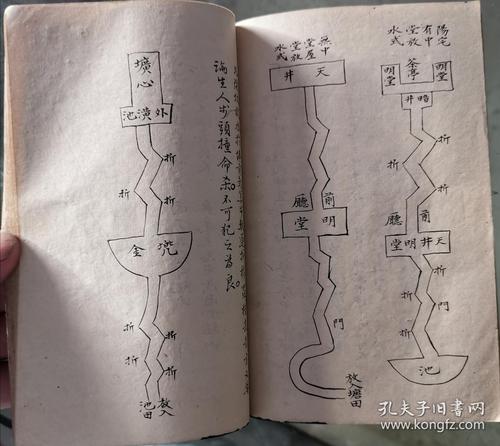 陽宅
有中
堂放
水式
明堂
茶亭
明堂
暗井
折
折
折
折
廳
前
天井明堂
折
門
折
池
無中
堂屋
堂放
水式
天井
廳
前
明堂
門
放入塘田
論生人步頭撞命杀。不可犯之爲良。
壙心
外潢池
折
折
折
金兜
折
折
折
折
放入池田
孔夫子旧书网
kongfz.com